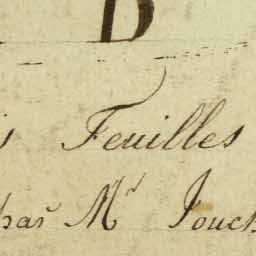 D
s Feuilles
par Mr Jouch